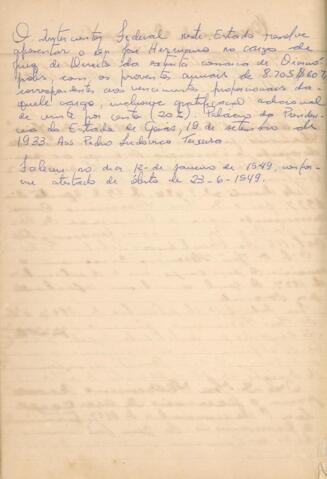 O Interventor Federal neste Estado resolve
aposentar o bel José Hermano no cargo de
juiz de Direito da extinta comarca de
polis, com os proventos anuais de 8.705$607
correspondentes aos vencimentos proporcionais da-
quele cargo, inclusive gratificação adicional
de vinte por cento (20%). Palacio da Presiden-
cia do Estado de Goiás, 19 de setembro de
1933. Ass Pedro Ludovico Teixeira
Faleceu no dia de janeiro de 1949, confor-
me atestado de óbito de 23-6-1949.